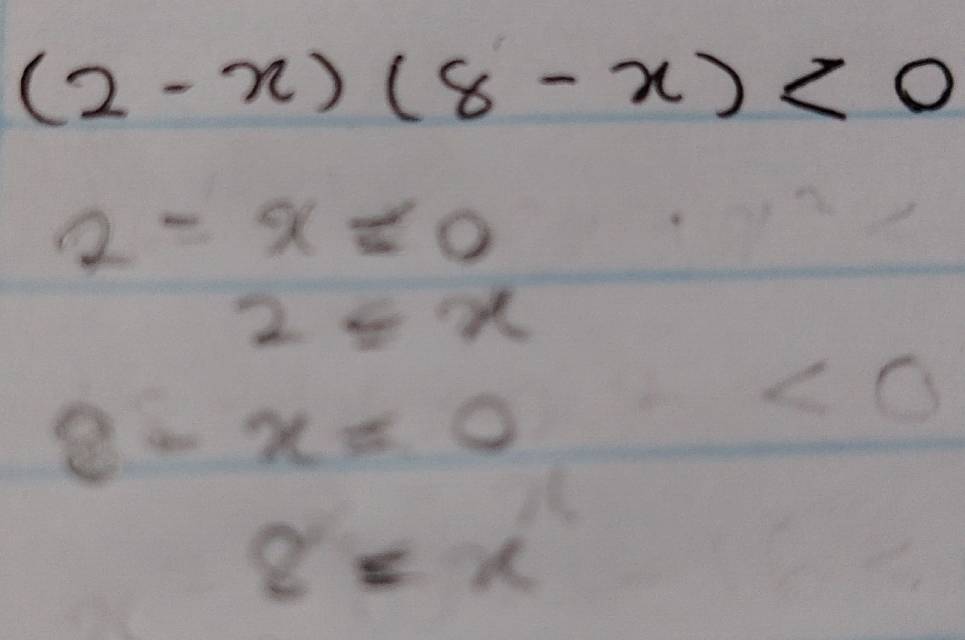 (2 - x) (8 - x) < 0
2 - x = 0
2 = x
8 - x = 0
< 0
8 = x